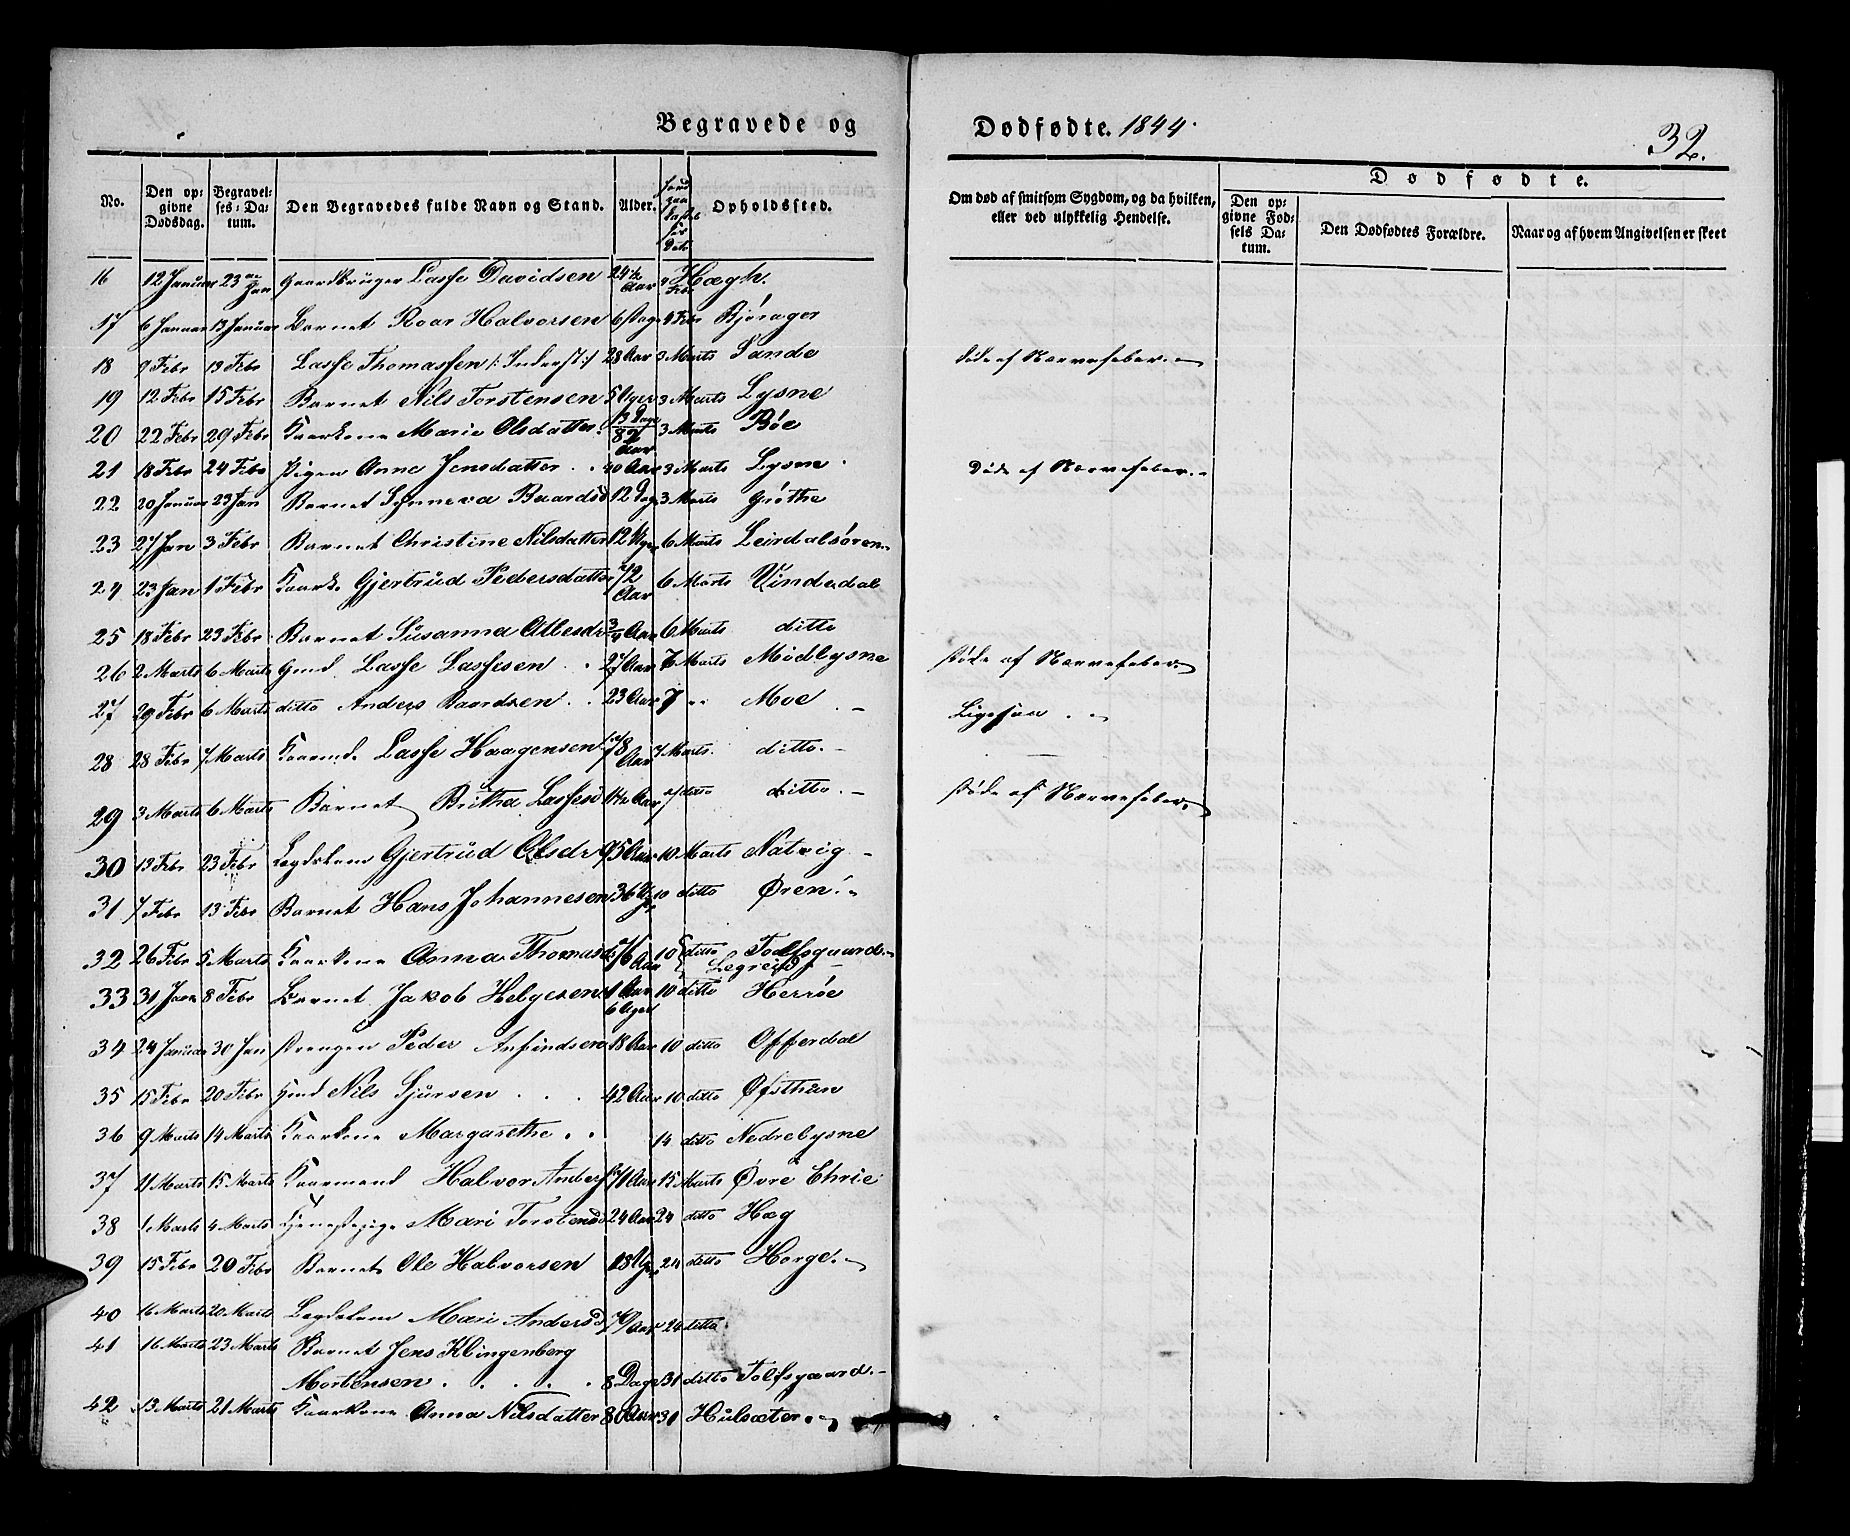 Begravede og Dødfødte. 1844.
32.
No. Den opgivne Dødsdag. Begravelses-Datum. Den Begravedes fulde Navn og Stand. Alder. Opholdssted. Om død af smitsom Sygdom, og da hvilken, eller ved ulykkelig Hendelse.
Dødfødte.
Den opgivne Fødsels Datum. Den Dødfødtes Forældre. Naar og af hvem Angivelsen er skeet
16 12 Januar 23 Jan Gaardbruger Lasse Davidsen 24 1/2 Aar Hægh.
17 6 Januar 13 Januar Barnet Roar Halvorsen 6 Dage 4 Febr Bjørager
18 9 Febr 19 Febr Lasse Thomassen /: Inderst :/ 28 Aar 3 Marts Sande døde af Nervefeber.
19 12 Febr 15 Febr Barnet Nils Torstensen 5 Uger 3 Marts Lysne
20 22 Febr 29 Febr Kaarkone Marie Olsdatter 3 Marts Bøe
21 18 Febr 24 Febr Pigen Anne Jensdatter 40 Aar 3 Marts Lysne Døde af Nervefeber.
22 20 Januar 23 Jan Barnet Synneva Baardsd 12 Dage 3 Marts Grøthe
23 27 Jan 3 Febr Barnet Christine Nilsdatter 12 Uger 6 Marts Leirdalsøren
24 23 Jan 1 Febr Kaark. Gjertrud Pedersdatter 72 Aar 6 Marts Vindedal
25 18 Febr 23 Febr Barnet Susanna Atlesdr 3/4 Aar 6 Marts ditto
26 2 Marts 6 Marts Gmd Lasse Lassesen 27 Aar 7 Marts Midlysne Døde af Nervefeber
27 29 Febr 6 Marts ditto Anders Baardsen 23 Aar 7 " Moe Ligesaa
28 28 Febr 7 Marts Kaarmd. Lasse Haagensen 78 Aar 7 Marts ditto
29 3 Marts 6 Marts Barnet Britha Lassesd 1 1/2 Aar 7 ditto ditto Døde af Nervefeber
30 19 Febr 23 Febr Lægdslem Gjertrud Olsdr 95 Aar 10 Marts Natvig
31 7 Febr 13 Febr Barnet Hans Johannesen 36 Uger 10 ditto Øren
32 26 Febr 5 Marts Kaarkone Anna Thomasd 76 Aar 10 ditto Tolfsgaard
Legreid
33 31 Jan 8 Febr Barnet Jakob Helgesen 1 Aar 6 Uger 10 ditto Herrøe
34 24 Januar 30 Jan Drengen Peder Anfindsen 18 Aar 10 ditto Offerdal
35 15 Febr 20 Febr Gmd Nils Sjursen 42 Aar 10 ditto Øfsthun
36 9 Marts 14 Marts Kaarkone Margarethe 14 ditto Nedrelysne
37 11 Marts 15 Marts Kaarmand Halvor Anders 71 Aar 15 Marts Øvre Ehrie
38 1 Marts 4 Marts Tjenestepige Mari Torstensd 24 Aar 24 ditto Hæg
39 15 Febr 20 Febr Barnet Ole Halvorsen 18 Uger 24 ditto Horge
40 16 Marts 20 Marts Lægdslem Mari Andersd 70 Aar 24 ditto
41 16 Marts 23 Marts Barnet Jens Klingenberg
Mortensen 8 Dage 31 ditto Tolfsgaard
42 13 Marts 21 Marts Kaarkone Anna Nilsdatter 80 Aar 31 Hulsæter